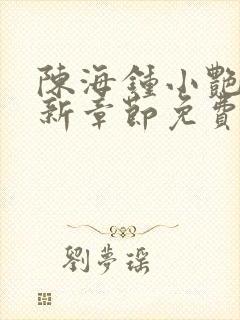 陳海鍾小艷
新章節免費
劉夢瑶